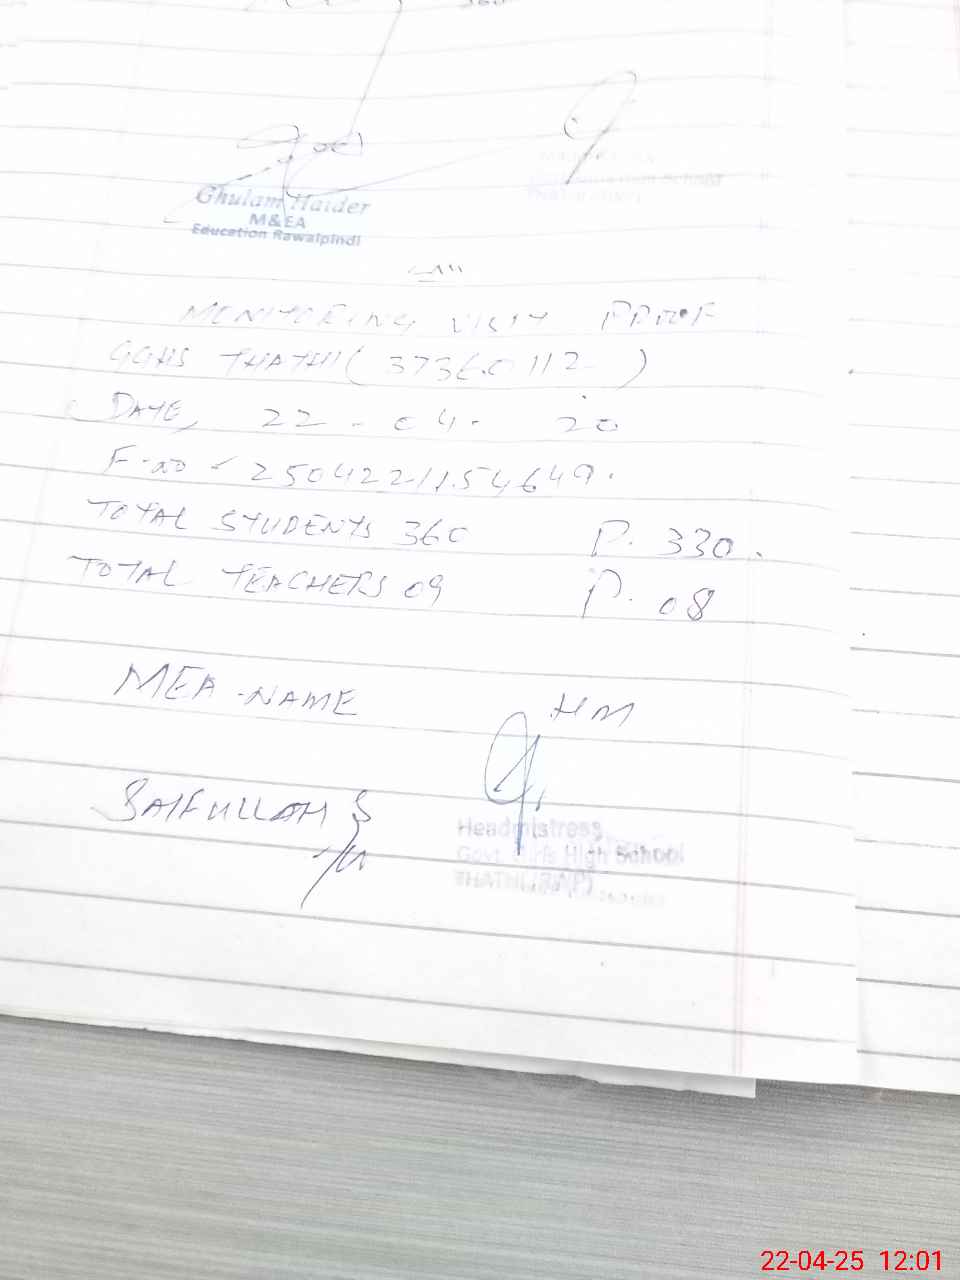 Ghulam Haider
M&EA
Education Rawalpindi
MONITORING VISIT PROOF
GGHS THATHI (37360112)
DATE, 22-04-20
F-no - 2504221154649.
TOTAL STUDENTS 360 P. 330.
TOTAL TEACHERS 09 P. 08
MEA-NAME
HM
SAIFULLAH S
Headmistress
Govt. Girls High School
THATHI (RWP)
22-04-25 12:01